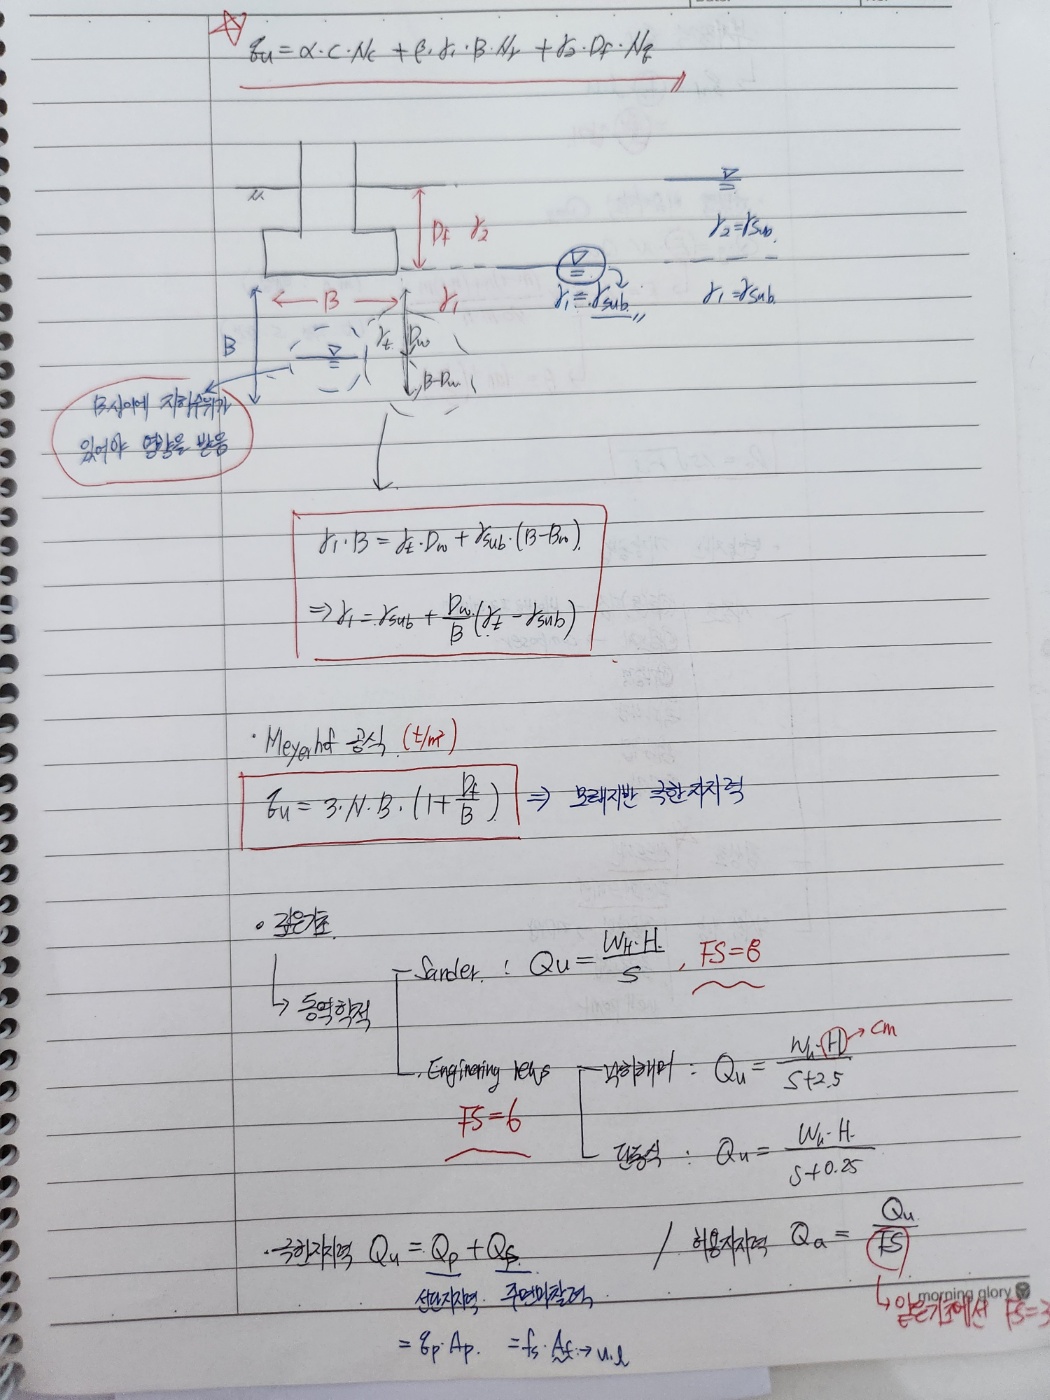 qu = α·c·Nc + β·γ1·B·Nr + γ2·Df·Nq
Df γ2
γ2=γsub.
γ1=γsub.
γ1=γsub
B
γ1
B
γt Dw
B-Dw
B사이에 지하수위가
있어야 영향을 받음
γ1·B = γt·Dw + γsub·(B-Bw)
⇒ γ1 = γsub + Dw/B (γt - γsub)
· Meyerhf 공식 (t/m²)
qu = 3·N·B·(1+ Df/B) ⇒ 모래지반 극한지지력
· 깊은기초
↳ 동역학적
Sander : Qu = WH·H/S , FS=8
Enginering news
FS=6
낙하해머 : Qu = Wh·H/S+2.5 → cm
단동식 : Qu = Wh·H/S+0.25
· 극한지지력 Qu = Qp + Qf / 허용지지력 Qa = Qu/FS
선단지지력 주면마찰력
↳ 얕은기초에선 FS=3
= qp·Ap. = fs·Af → u·l
morning glory